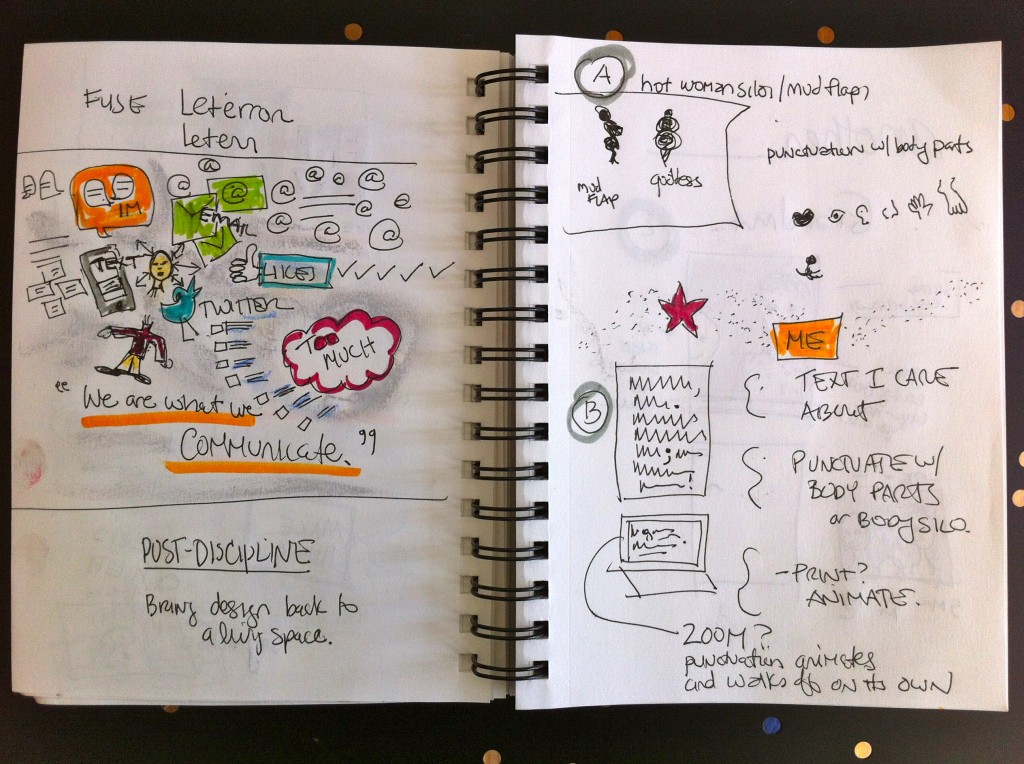 FUSE Leterror
Leterr
IM
@ @ @ @ @ @ @
@ @ @ @
EMAIL
TEXT
LIKES
TWITTER
TOO
MUCH
" We are what we
COMMUNICATE. "
POST-DISCIPLINE
Bring design back to
a living space.
A hot woman silos / mud flaps
MUD FLAP
goddess
punctuation w/ body parts
ME
B
TEXT I CARE
ABOUT
PUNCTUATE W/
BODY PARTS
or BODY SILO.
- PRINT?
ANIMATE.
ZOOM?
punctuation animates
and walks off on its own